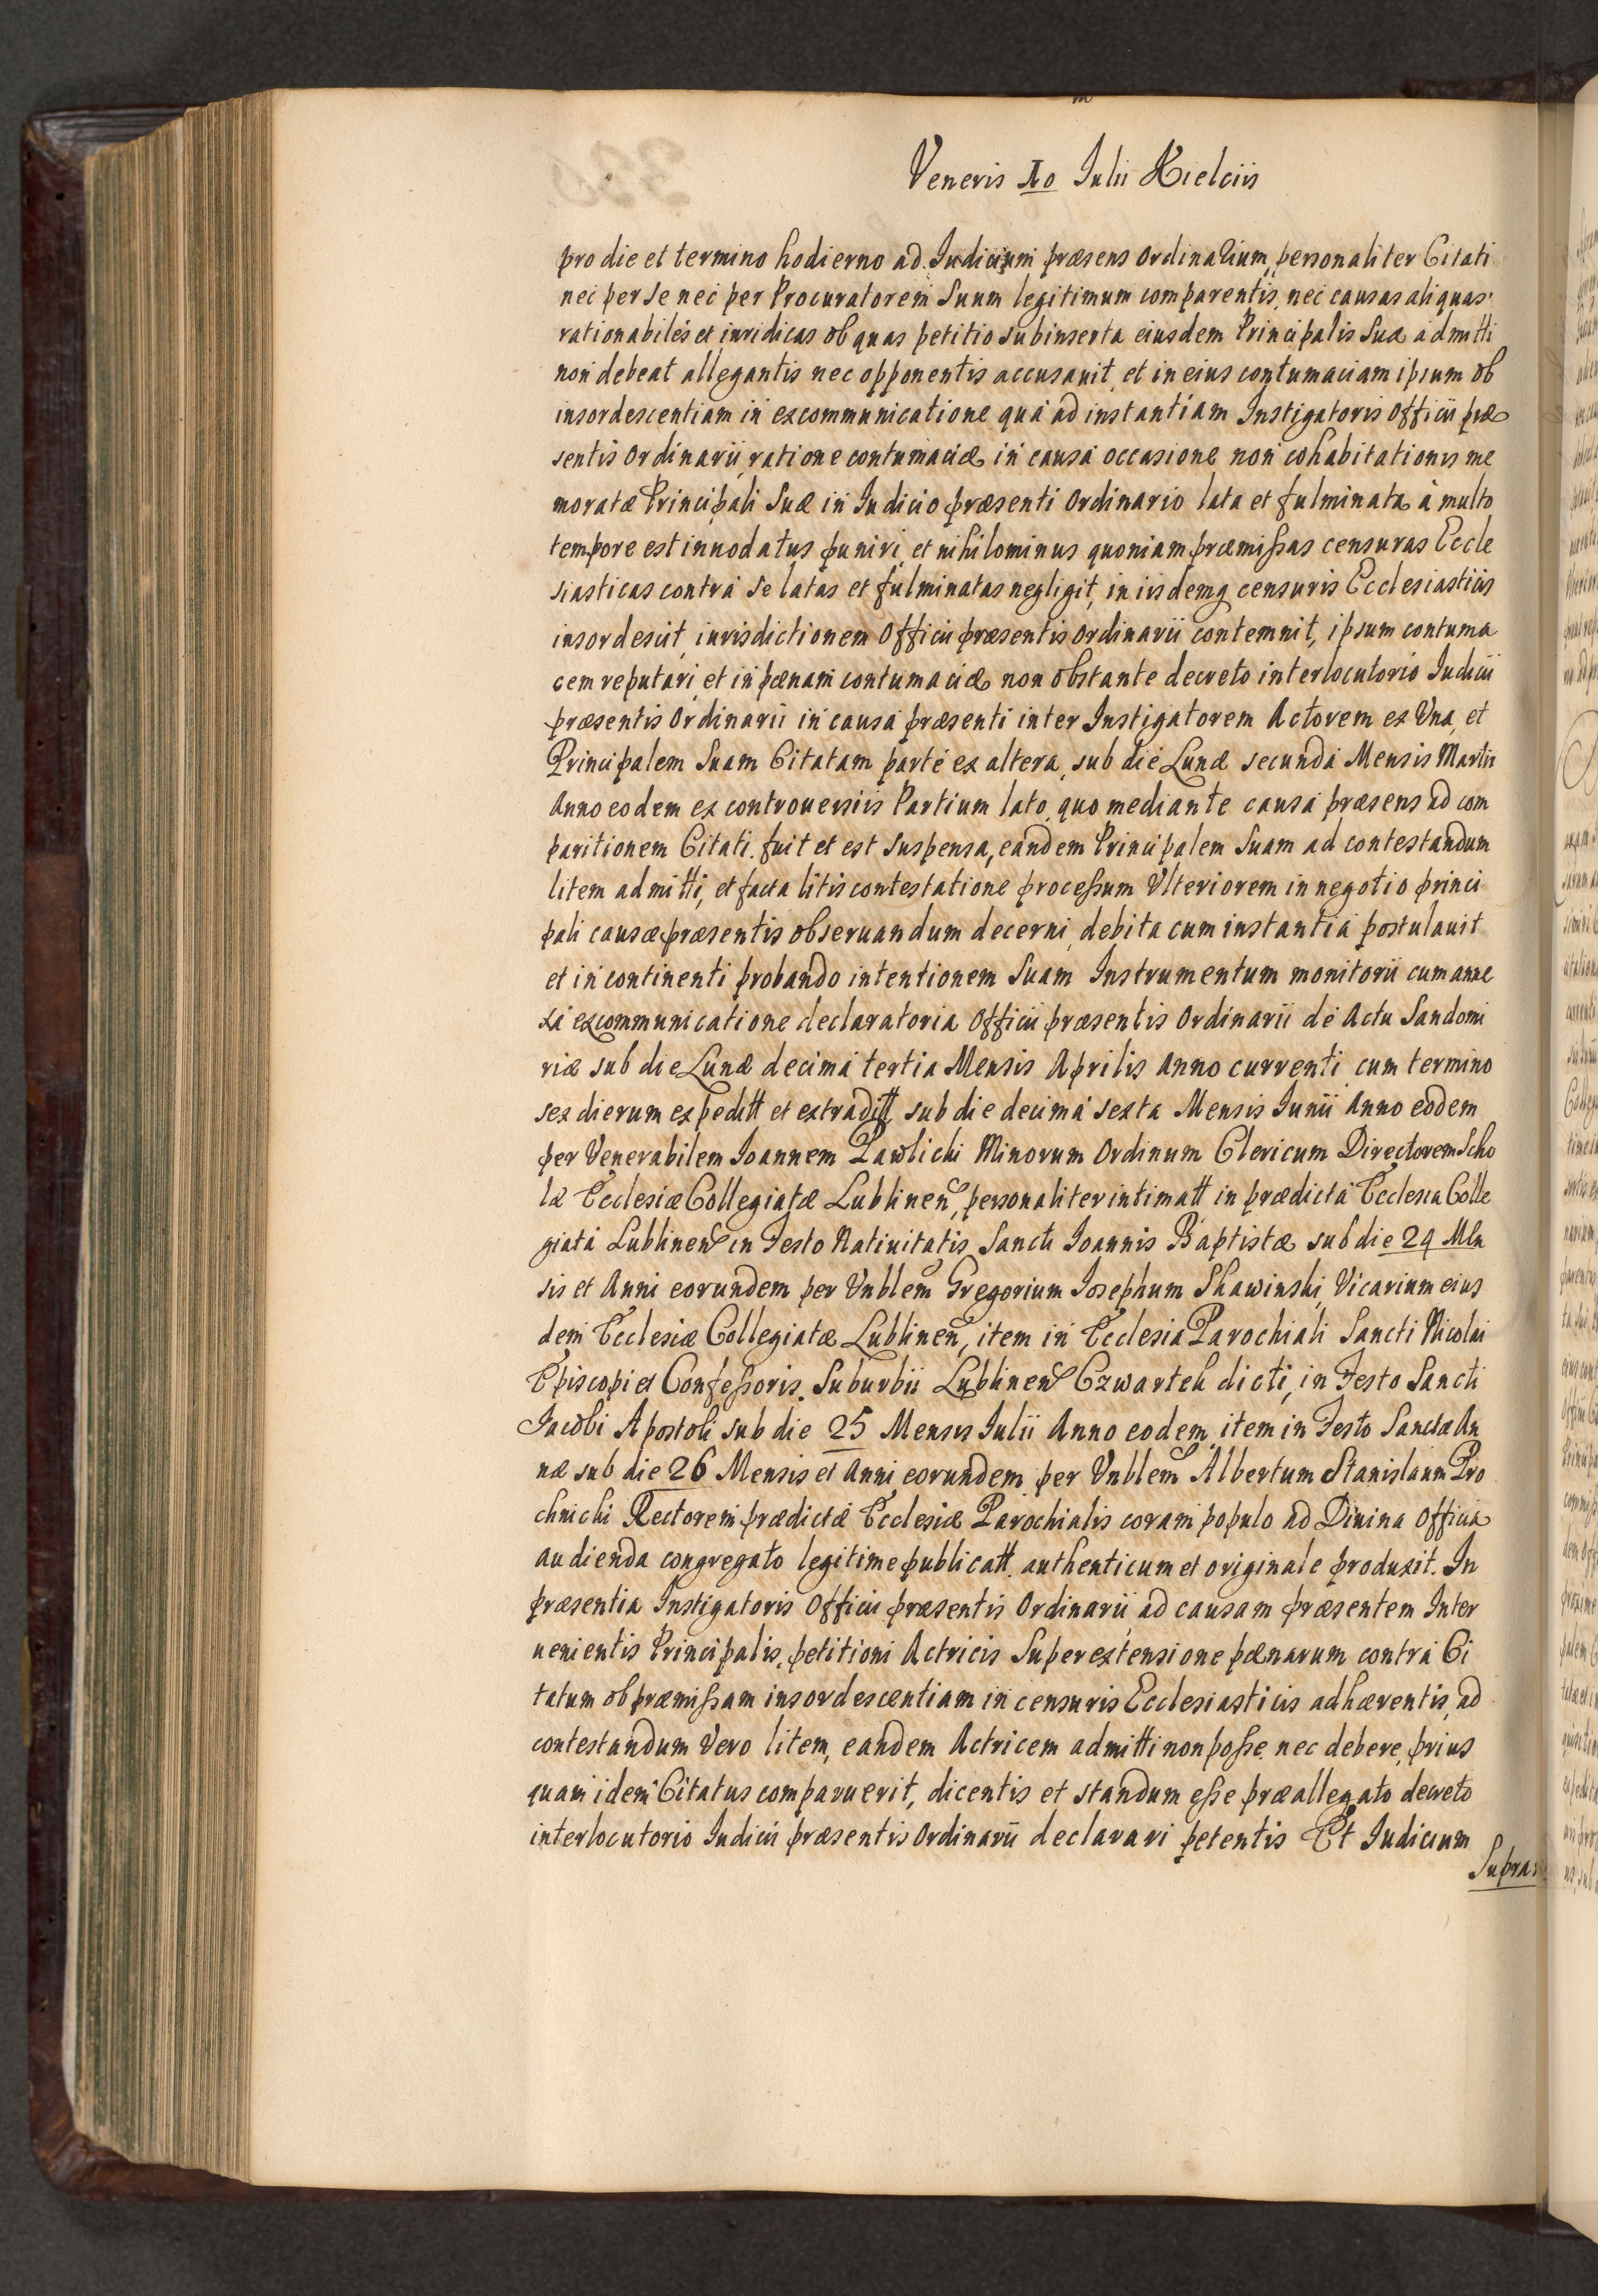 Veneris 10 Iulii Kielciis
pro die et termino hodierno ad Iudicium præsens Ordinarium, personaliter Citati
nec per se nec per Procuratorem Suum legitimum comparentis, nec causas aliquas
rationabiles et iuridicas ob quas petitio subinserta eiusdem Principalis Suæ admitti
non debeat allegantis nec opponentis accusauit, et in eius contumaciam ipsum ob
insordescentiam in excommunicatione qua ad instantiam Instigatoris Officii præ
sentis Ordinarii, ratione contumaciæ, in causa occasione non cohabitationis me
moratæ Principali Suæ in Iudicio præsenti Ordinario lata et fulminata à multo
tempore est innodatus puniri, et nihilominus quoniam præmissas censuras Eccle
siasticas contra se latas et fulminatas negligit, in iisdemq censuris Ecclesiasticis
insordescit, iurisdictionem Officii præsentis Ordinarii contemnit, ipsum contuma
cem reputari, et in pænam contumaciæ non obstante decreto interlocutorio Iudicii
præsentis Ordinarii in causa præsenti inter Instigatorem Actorem ex Vna, et
Principalem Suam Citatam parte ex altera, sub die Lunæ secunda Mensis Martii
Anno eodem ex controuersiis Partium lato, quo mediante causa præsens ad com
paritionem Citati fuit et est suspensa, eandem Principalem Suam ad contestandum
litem admitti, et facta litis contestatione processum Vlteriorem in negotio princi
pali causæ præsentis obseruandum decerni, debita cum instantia postulauit
et in continenti probando intentionem Suam Instrumentum monitorii cum anne
xa excommunicatione declaratoria Officii præsentis Ordinarii de Actu Sandomi
riæ sub die Lunæ decima tertia Mensis Aprilis Anno currenti cum termino
sex dierum expeditt et extraditt sub die decima sexta Mensis Iunii Anno eodem
per Venerabilem Ioannem Pawlicki Minorum Ordinum Clericum Directorem Scho
læ Ecclesiæ Collegiatæ Lublinen, personaliter intimatt in prædicta Ecclesia Colle
giata Lublinen in Festo Natiuitatis Sancti Ioannis Baptistæ sub die 24 Men
sis et Anni eorundem per Vnblem Gregorium Iosephum Skawinski, Vicarium eius
dem Ecclesiæ Collegiatæ Lublinen, item in Ecclesia Parochiali Sancti Nicolai
Episcopi et Confessoris Suburbii Lublinen Czwartek dicti, in Festo Sancti
Iacobi Apostoli sub die 25 Mensis Iulii Anno eodem, item in Festo Sanctæ An
næ sub die 26 Mensis et Anni eorundem per Vnblem Albertum Stanislaum Pro
chnicki Rectorem prædictæ Ecclesiæ Parochialis coram populo ad Diuina Officia
audienda congregato legitime publicatt authenticum et originale produxit. In
præsentia Instigatoris Officii præsentis Ordinarii ad causam præsentem Inter
uenientis Principalis, petitioni Actricis Super extensione pænarum contra Ci
tatum ob præmissam insordescentiam in censuris Ecclesiasticis adhærentis, ad
contestandum Vero litem, eandem Actricem admitti non posse nec debere, prius
quam idem Citatus comparuerit, dicentis et standum esse præallegato decreto
interlocutorio Iudicii præsentis Ordinarii declarari petentis Et Iudicium